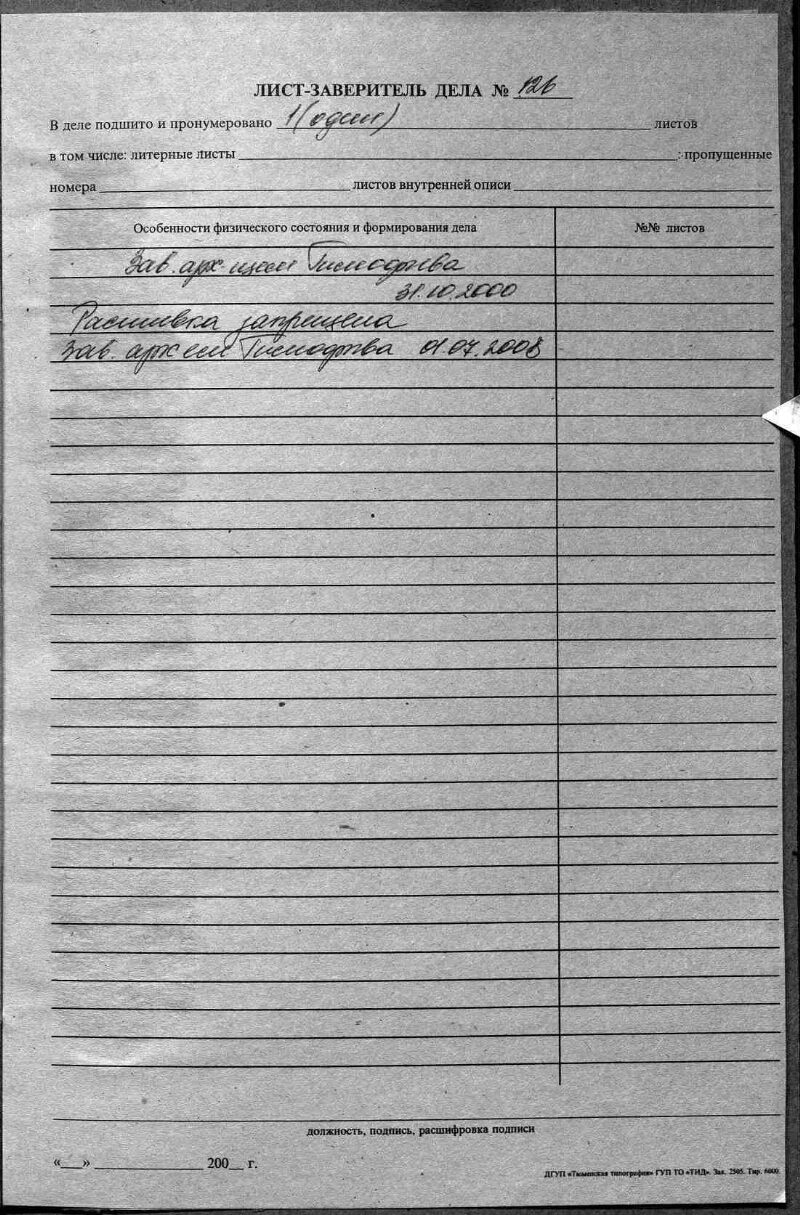 ЛИСТ-ЗАВЕРИТЕЛЬ ДЕЛА № 126
В деле подшито и пронумеровано 1 (один) листов
в том числе: литерные листы ; пропущенные
номера листов внутренней описи
Особенности физического состояния и формирования дела №№ листов
Зав. арх Тимофеева
31.10.2000
Расшивка запрещена
Зав. арх Тимофеева 01.07.2008
должность, подпись, расшифровка подписи
«___» 200__ г.
ДГУП «Тюменская типография» ГУП ТО «ТИД». Зак. 2505. Тир. 6000.